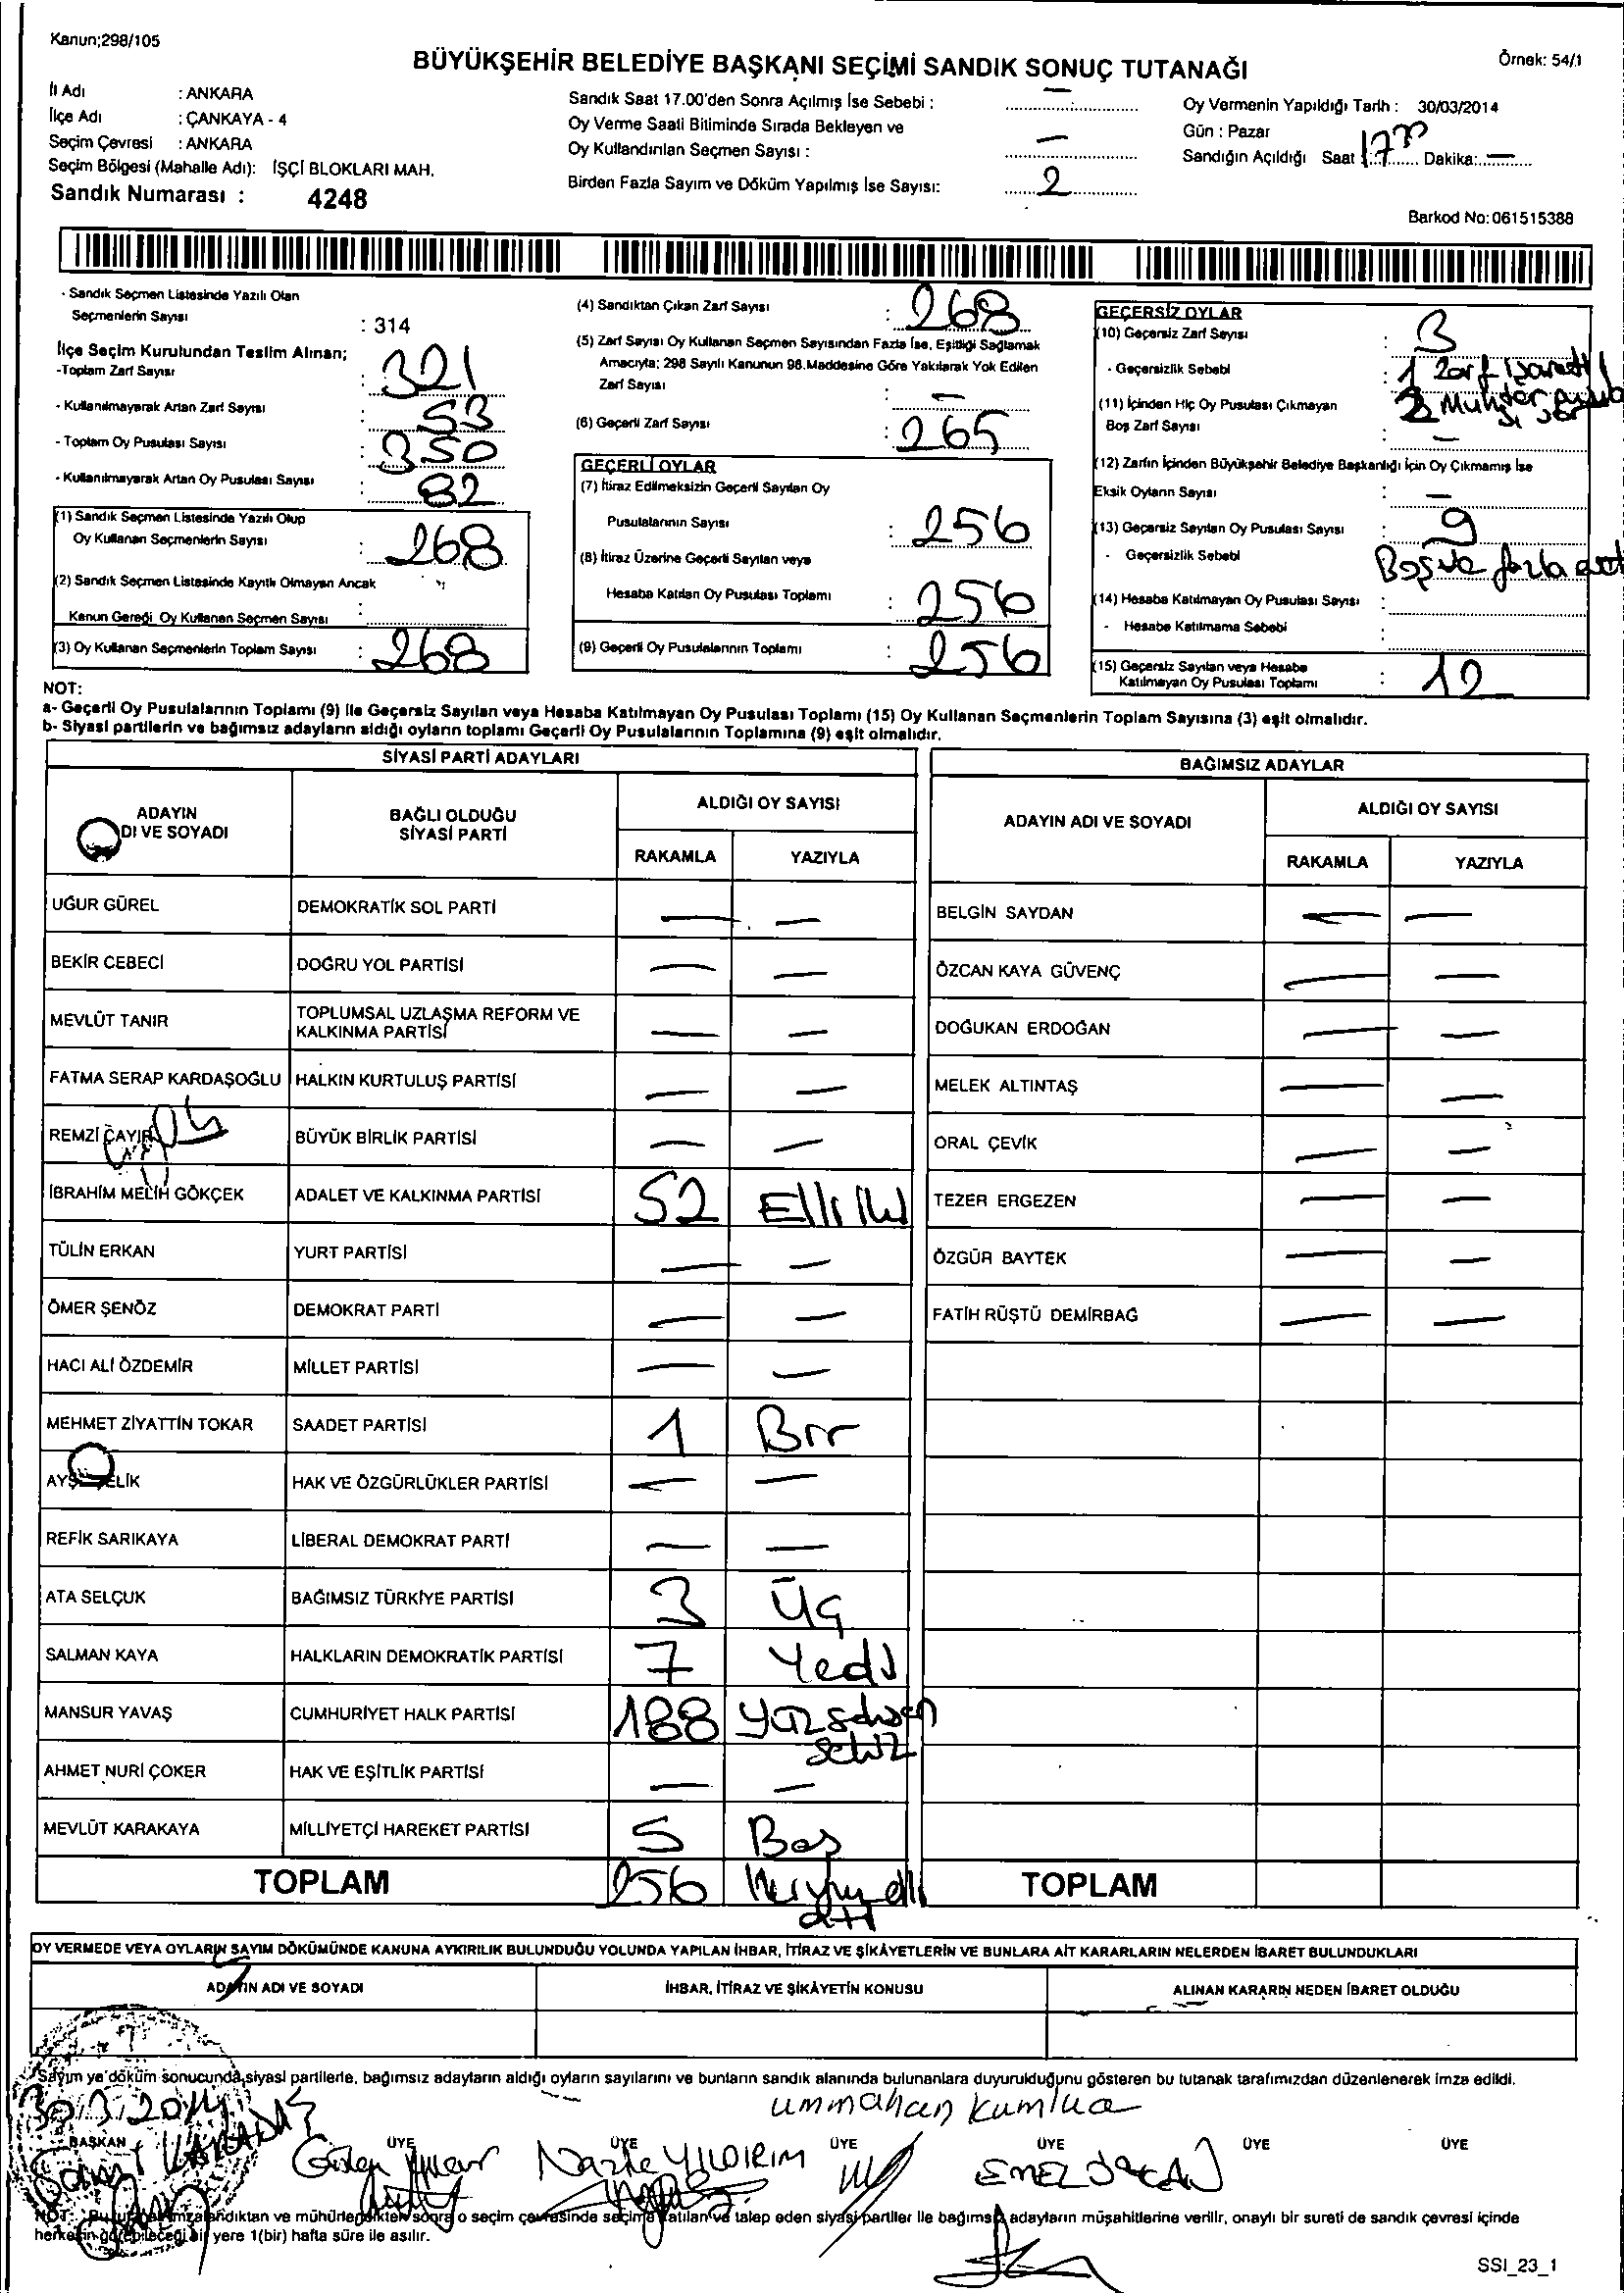 Kanun;298/105
BÜYÜKŞEHİR BELEDİYE BAŞKANI SEÇİMİ SANDIK SONUÇ TUTANAĞI
Örnek: 54/1
İl Adı : ANKARA
İlçe Adı : ÇANKAYA - 4
Seçim Çevresi : ANKARA
Seçim Bölgesi (Mahalle Adı): İŞÇİ BLOKLARI MAH.
Sandık Numarası : 4248
Sandık Saat 17.00'den Sonra Açılmış İse Sebebi : —
Oy Verme Saati Bitiminde Sırada Bekleyen ve
Oy Kullandırılan Seçmen Sayısı : —
Birden Fazla Sayım ve Döküm Yapılmış İse Sayısı: 2
Oy Vermenin Yapıldığı Tarih : 30/03/2014
Gün : Pazar
Sandığın Açıldığı Saat : 17 Dakika: —
Barkod No: 061515388
- Sandık Seçmen Listesinde Yazılı Olan
Seçmenlerin Sayısı : 314
İlçe Seçim Kurulundan Teslim Alınan;
-Toplam Zarf Sayısı : 321
- Kullanılmayarak Artan Zarf Sayısı : 53
- Toplam Oy Pusulası Sayısı : 350
- Kullanılmayarak Artan Oy Pusulası Sayısı : 82
(1) Sandık Seçmen Listesinde Yazılı Olup
Oy Kullanan Seçmenlerin Sayısı : 268
(2) Sandık Seçmen Listesinde Kayıtlı Olmayan Ancak
Kanun Gereği Oy Kullanan Seçmen Sayısı :
(3) Oy Kullanan Seçmenlerin Toplam Sayısı : 268
(4) Sandıktan Çıkan Zarf Sayısı : 268
(5) Zarf Sayısı Oy Kullanan Seçmen Sayısından Fazla İse, Eşitliği Sağlamak
Amacıyla; 298 Sayılı Kanunun 98.Maddesine Göre Yakılarak Yok Edilen
Zarf Sayısı : —
(6) Geçerli Zarf Sayısı : 265
GEÇERLİ OYLAR
(7) İtiraz Edilmeksizin Geçerli Sayılan Oy
Pusulalarının Sayısı : 256
(8) İtiraz Üzerine Geçerli Sayılan veya
Hesaba Katılan Oy Pusulası Toplamı : 256
(9) Geçerli Oy Pusulalarının Toplamı : 256
GEÇERSİZ OYLAR
(10) Geçersiz Zarf Sayısı : 3
- Geçersizlik Sebebi : 1 Zarf işaretli
2 Muhtar
(11) İçinden Hiç Oy Pusulası Çıkmayan
Boş Zarf Sayısı : —
(12) Zarfın İçinden Büyükşehir Belediye Başkanlığı İçin Oy Çıkmamış İse
Eksik Oyların Sayısı : —
(13) Geçersiz Sayılan Oy Pusulası Sayısı : 9
- Geçersizlik Sebebi : Boş ve fazla evet
(14) Hesaba Katılmayan Oy Pusulası Sayısı :
- Hesaba Katılmama Sebebi :
(15) Geçersiz Sayılan veya Hesaba
Katılmayan Oy Pusulası Toplamı : 12
NOT:
a- Geçerli Oy Pusulalarının Toplamı (9) ile Geçersiz Sayılan veya Hesaba Katılmayan Oy Pusulası Toplamı (15) Oy Kullanan Seçmenlerin Toplam Sayısına (3) eşit olmalıdır.
b- Siyasi partilerin ve bağımsız adayların aldığı oyların toplamı Geçerli Oy Pusulalarının Toplamına (9) eşit olmalıdır.
SİYASİ PARTİ ADAYLARI
ADAYIN
DI VE SOYADI
BAĞLI OLDUĞU
SİYASİ PARTİ
ALDIĞI OY SAYISI
RAKAMLA YAZIYLA
UĞUR GÜREL DEMOKRATİK SOL PARTİ — —
BEKİR CEBECİ DOĞRU YOL PARTİSİ — —
MEVLÜT TANIR TOPLUMSAL UZLAŞMA REFORM VE
KALKINMA PARTİSİ — —
FATMA SERAP KARDAŞOĞLU HALKIN KURTULUŞ PARTİSİ — —
REMZİ ÇAYIR BÜYÜK BİRLİK PARTİSİ — —
İBRAHİM MELİH GÖKÇEK ADALET VE KALKINMA PARTİSİ 52 Elli iki
TÜLİN ERKAN YURT PARTİSİ — —
ÖMER ŞENÖZ DEMOKRAT PARTİ — —
HACI ALİ ÖZDEMİR MİLLET PARTİSİ — —
MEHMET ZİYATTİN TOKAR SAADET PARTİSİ 1 Bir
HAK VE ÖZGÜRLÜKLER PARTİSİ — —
REFİK SARIKAYA LİBERAL DEMOKRAT PARTİ — —
ATA SELÇUK BAĞIMSIZ TÜRKİYE PARTİSİ 3 Üç
SALMAN KAYA HALKLARIN DEMOKRATİK PARTİSİ 7 Yedi
MANSUR YAVAŞ CUMHURİYET HALK PARTİSİ 188 yüz seksen
sekiz
AHMET NURİ ÇOKER HAK VE EŞİTLİK PARTİSİ — —
MEVLÜT KARAKAYA MİLLİYETÇİ HAREKET PARTİSİ 5 Beş
TOPLAM 256 ikiyüz elli
altı
BAĞIMSIZ ADAYLAR
ADAYIN ADI VE SOYADI
ALDIĞI OY SAYISI
RAKAMLA YAZIYLA
BELGİN SAYDAN — —
ÖZCAN KAYA GÜVENÇ — —
DOĞUKAN ERDOĞAN — —
MELEK ALTINTAŞ — —
ORAL ÇEVİK — —
TEZER ERGEZEN — —
ÖZGÜR BAYTEK — —
FATİH RÜŞTÜ DEMİRBAĞ — —
TOPLAM
OY VERMEDE VEYA OYLARIN SAYIM DÖKÜMÜNDE KANUNA AYKIRILIK BULUNDUĞU YOLUNDA YAPILAN İHBAR, İTİRAZ VE ŞİKÂYETLERİN VE BUNLARA AİT KARARLARIN NELERDEN İBARET BULUNDUKLARI
ADAYIN ADI VE SOYADI İHBAR, İTİRAZ VE ŞİKÂYETİN KONUSU ALINAN KARARIN NEDEN İBARET OLDUĞU
Sayım ve döküm sonucunda siyasi partilerle, bağımsız adayların aldığı oyların sayılarını ve bunların sandık alanında bulunanlara duyurulduğunu gösteren bu tutanak tarafımızdan düzenlenerek imza edildi.
30/3/2014
ummahan Kumluca
BAŞKAN ÜYE ÜYE ÜYE ÜYE ÜYE ÜYE
YILDIRIM EMEL
NOT: Bu tutanak imzalandıktan ve mühürlendikten sonra o seçim çevresinde seçime katılan ve talep eden siyasi partiler ile bağımsız adayların müşahitlerine verilir, onaylı bir sureti de sandık çevresi içinde
herkesin görebileceği bir yere 1(bir) hafta süre ile asılır.
SSI_23_1